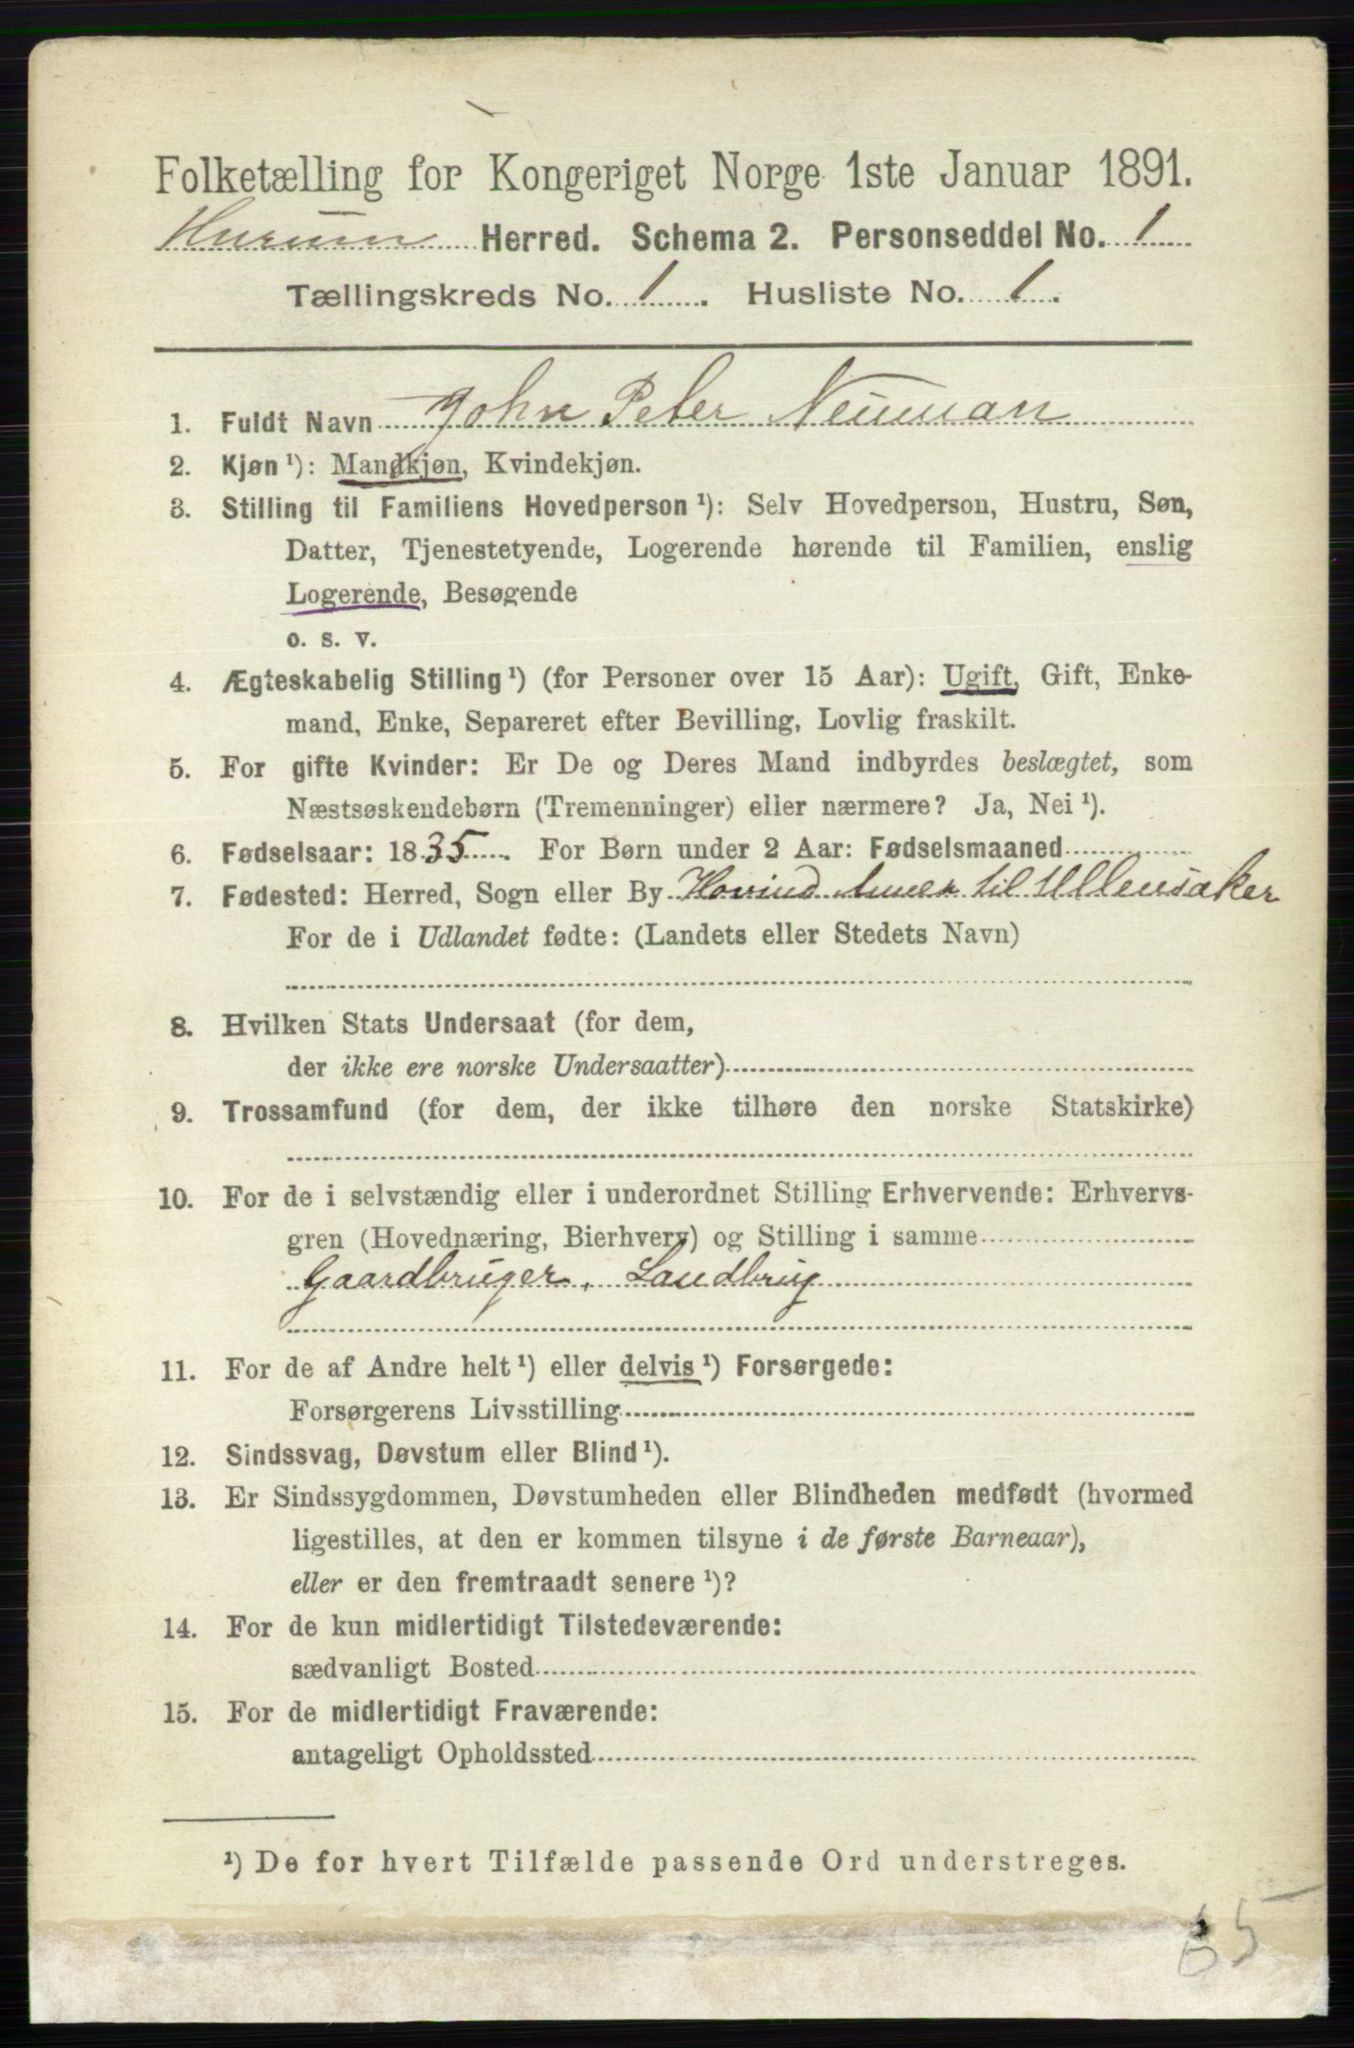 Folketælling for Kongeriget Norge 1ste Januar 1891.
Hurum Herred. Schema 2. Personseddel No. 1
Tællingskreds No. 1. Husliste No. 1.
1. Fuldt Navn John Peter Neuman
2. Kjøn ¹): Mandkjøn, Kvindekjøn.
3. Stilling til Familiens Hovedperson ¹): Selv Hovedperson, Hustru, Søn,
Datter, Tjenestetyende, Logerende hørende til Familien, enslig
Logerende, Besøgende
o. s. v.
4. Ægteskabelig Stilling ¹) (for Personer over 15 Aar): Ugift, Gift, Enke-
mand, Enke, Separeret efter Bevilling, Lovlig fraskilt.
5. For gifte Kvinder: Er De og Deres Mand indbyrdes beslægtet, som
Næstsøskendebørn (Tremenninger) eller nærmere? Ja, Nei ¹).
6. Fødselsaar: 1835. For Børn under 2 Aar: Fødselsmaaned
7. Fødested: Herred, Sogn eller By Hovind Anex til Ullensaker
For de i Udlandet fødte: (Landets eller Stedets Navn)
8. Hvilken Stats Undersaat (for dem,
der ikke ere norske Undersaatter)
9. Trossamfund (for dem, der ikke tilhøre den norske Statskirke)
10. For de i selvstændig eller i underordnet Stilling Erhvervende: Erhvervs-
gren (Hovednæring, Bierhverv) og Stilling i samme
Gaardbruger, Landbrug
11. For de af Andre helt ¹) eller delvis ¹) Forsørgede:
Forsørgerens Livsstilling
12. Sindssvag, Døvstum eller Blind ¹).
13. Er Sindssygdommen, Døvstumheden eller Blindheden medfødt (hvormed
ligestilles, at den er kommen tilsyne i de første Barneaar),
eller er den fremtraadt senere ¹)?
14. For de kun midlertidigt Tilstedeværende:
sædvanligt Bosted
15. For de midlertidigt Fraværende:
antageligt Opholdssted
¹) De for hvert Tilfælde passende Ord understreges.
65